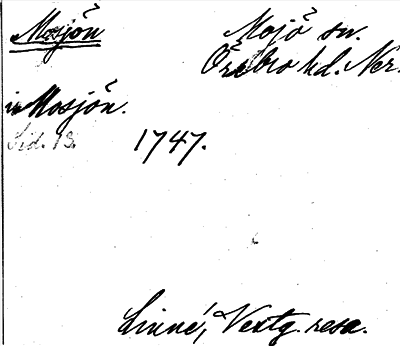 Mosjön
Mosjö sn.
Örebro hd. Ner.
i Mosjön.
Sid. 13.
1747.
Linné, Vestg. resa.